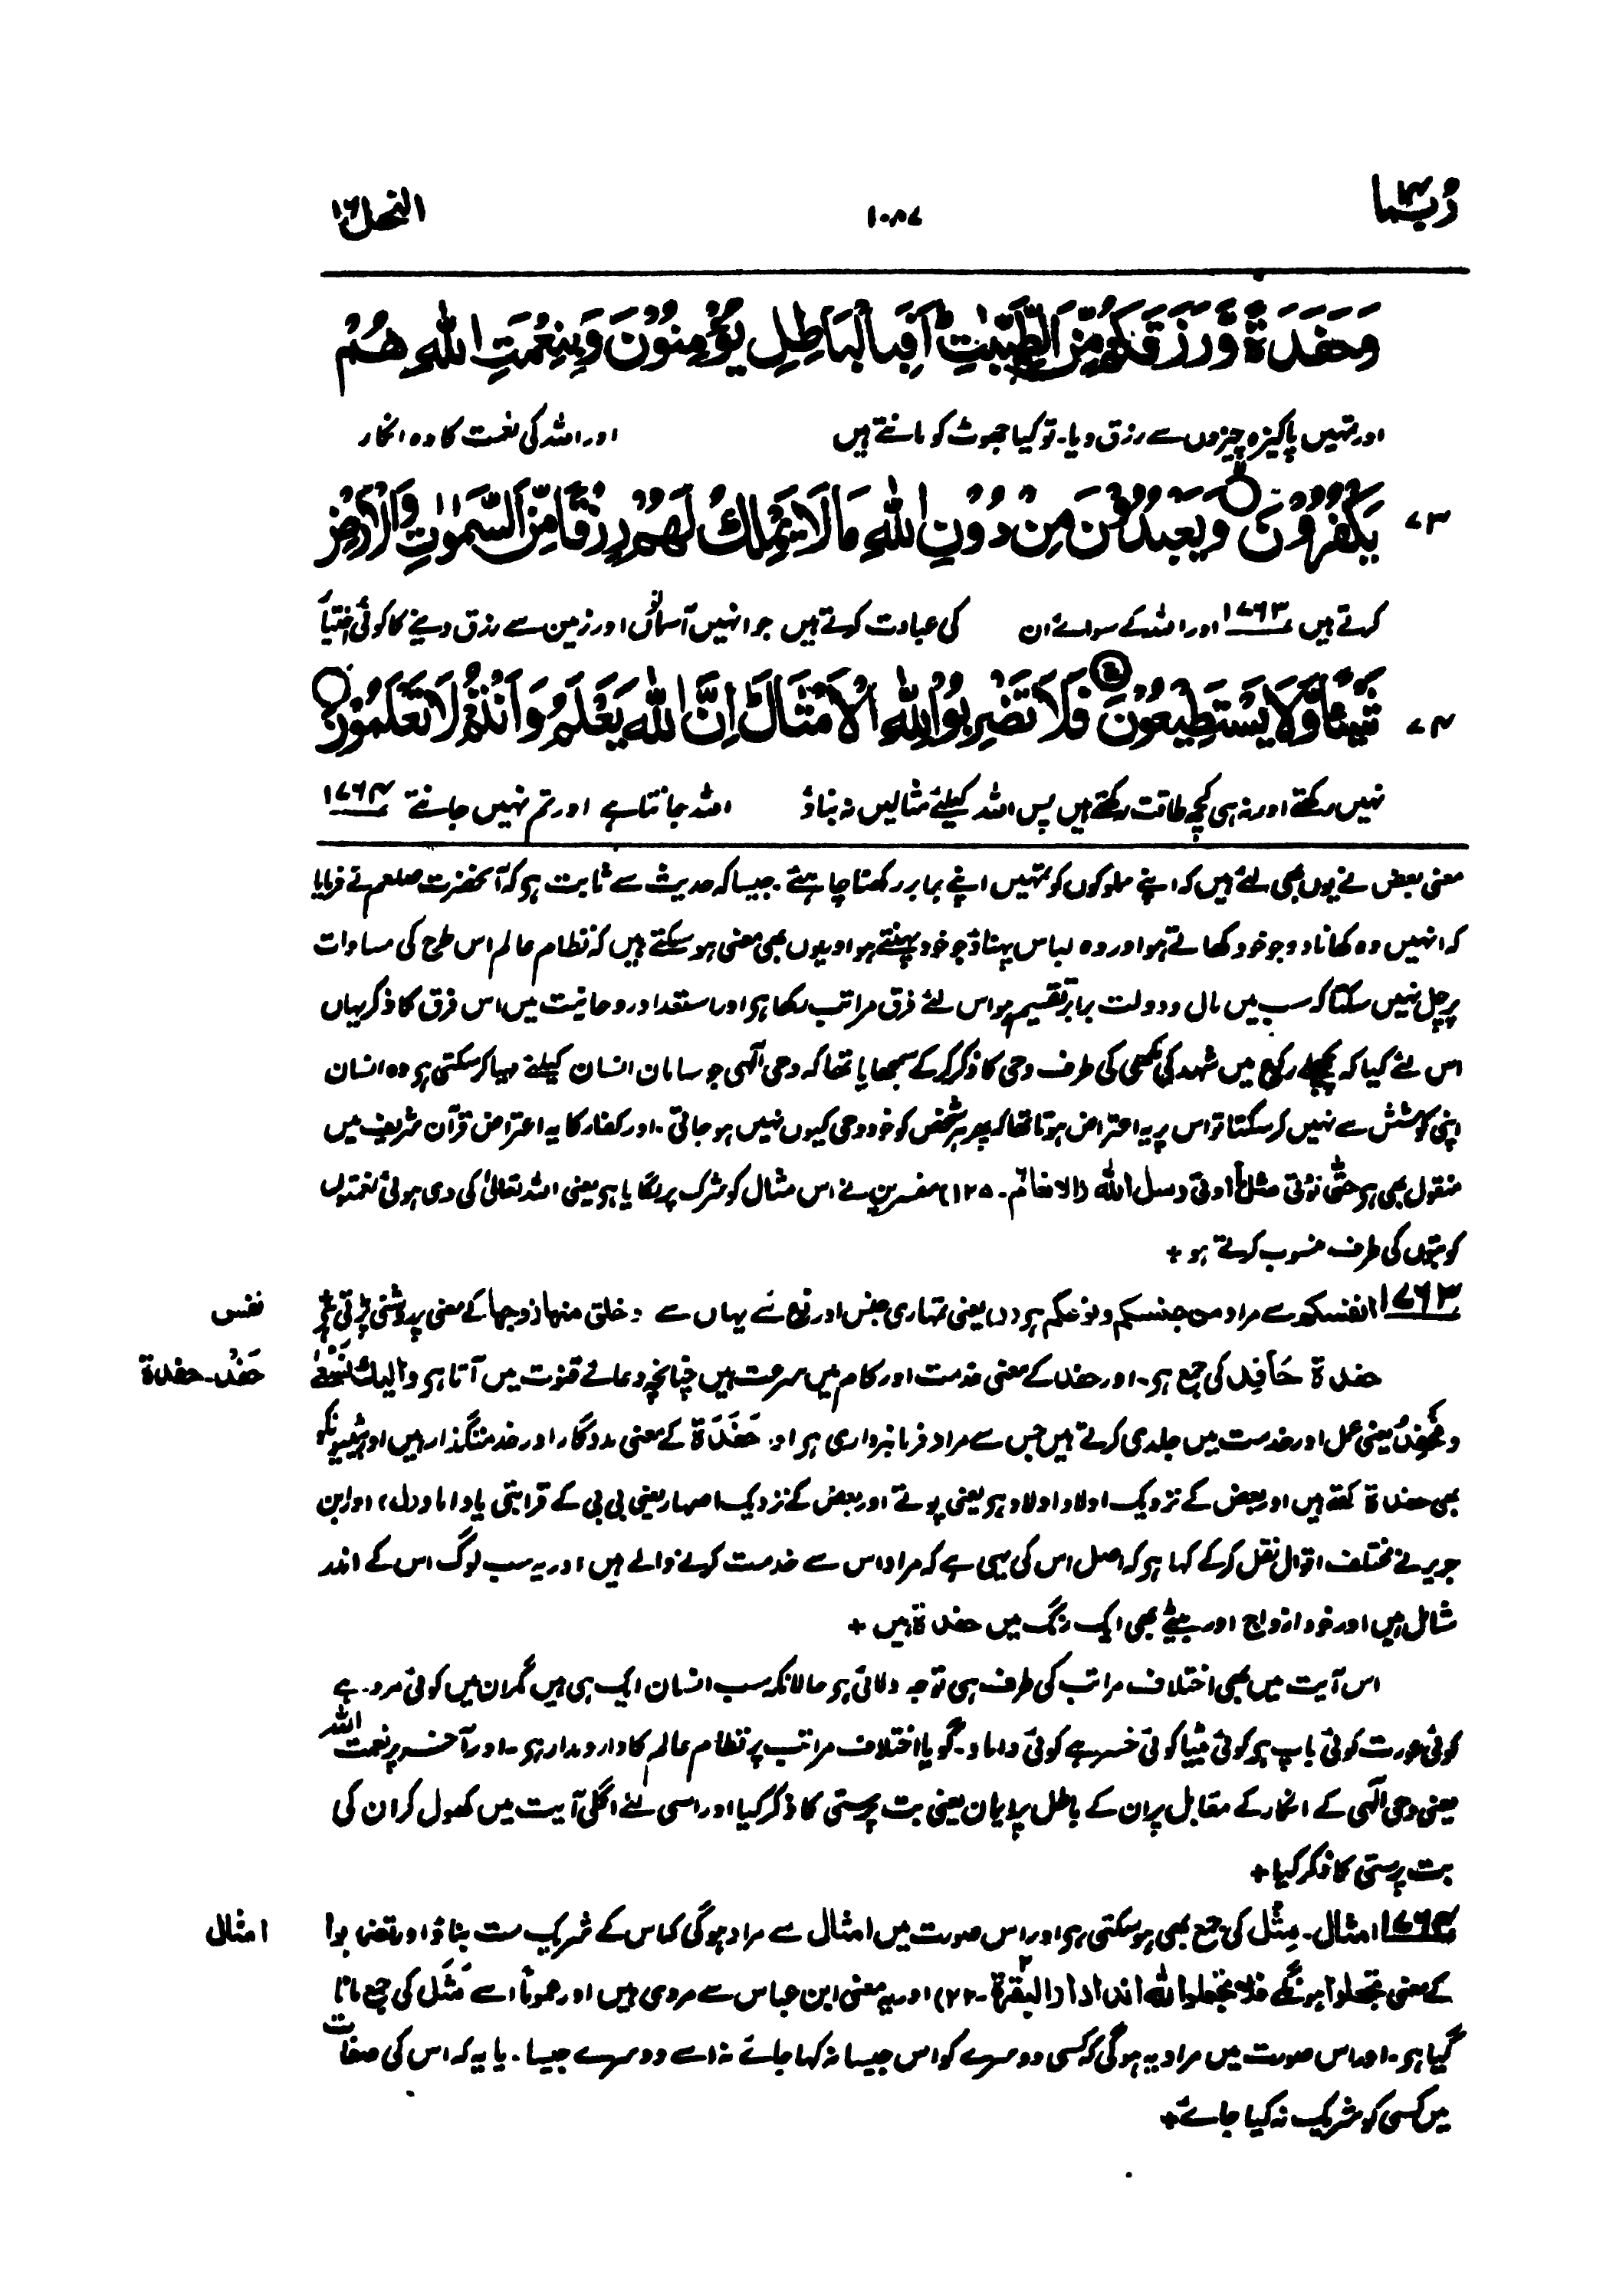 ربما ۱۴
۱۰۸۷
النحل ۱۶
وَحَفَدَةً وَّرَزَقَكُمْ مِّنَ الطَّيِّبٰتِ ؕ اَفَبِالْبَاطِلِ يُؤْمِنُوْنَ وَبِنِعْمَتِ اللّٰهِ هُمْ
اور تمہیں پاکیزہ چیزوں سے رزق دیا۔ تو کیا جھوٹ کو مانتے ہیں اور اللہ کی نعمت کا وہ انکار
۷۳ يَكْفُرُوْنَ ۙ وَيَعْبُدُوْنَ مِنْ دُوْنِ اللّٰهِ مَا لَا يَمْلِكُ لَهُمْ رِزْقًا مِّنَ السَّمٰوٰتِ وَالْاَرْضِ
کرتے ہیں ۱۷۶۳ اور اللہ کے سوائے ان کی عبادت کرتے ہیں جو انہیں آسمانوں اور زمین سے رزق دینے کا کوئی اختیار
۷۴ شَيْئًا وَّلَا يَسْتَطِيْعُوْنَ فَلَا تَضْرِبُوْا لِلّٰهِ الْاَمْثَالَ ؕ اِنَّ اللّٰهَ يَعْلَمُ وَاَنْتُمْ لَا تَعْلَمُوْنَ
نہیں رکھتے اور نہ ہی کچھ طاقت رکھتے ہیں پس اللہ کیلئے مثالیں نہ بناؤ اللہ جانتا ہے اور تم نہیں جانتے ۱۷۶۴
معنی بعض نے یوں بھی لئے ہیں کہ اپنے مملوکوں کو تمہیں اپنے برابر رکھنا چاہئے۔ جیسا کہ حدیث سے ثابت ہو کہ آنحضرت صلعم نے فرمایا
کہ انہیں وہ کھانا دو جو خود کھاتے ہو اور وہ لباس پہناؤ جو خود پہنتے ہو اور یوں بھی معنی ہو سکتے ہیں کہ نظام عالم اس طرح کی مساوات
پر چل نہیں سکتا کہ سب میں مال و دولت برابر تقسیم ہو اس لئے فرق مراتب رکھا ہو اور استعداد روحانیت میں اس فرق کا ذکر یہاں
اس لئے کیا کہ پچھلے رکوع میں شہد کی مکھی کی طرف وحی کا ذکر کرکے سمجھایا تھا کہ وحی الٰہی جو سامان انسان کیلئے مہیا کر سکتی ہو وہ انسان
اپنی کوشش سے نہیں کر سکتا تو اس پر یہ اعتراض ہوتا تھا کہ پھر ہر شخص کو خود وحی کیوں نہیں ہو جاتی۔ اور کفار کا یہ اعتراض قرآن شریف میں
منقول بھی ہو حتّٰی نؤتی مثل ما اوتی رسل اللہ (الانعام ۶۔ ۱۲۵) مفسرین نے اس مثال کو شرک پر لگایا ہو یعنی اللہ تعالیٰ کی دی ہوئی نعمتوں
کو بتوں کی طرف منسوب کرتے ہو +
۱۷۶۳ انفسکم سے مراد من جنسکم و نوعکم ہو (ر) یعنی تمہاری جنس اور نوع سے یہاں سے وخلق منھا زوجھا کے معنی پر روشنی پڑتی ہے
نفس
حفدة حَافِد کی جمع ہو۔ اور حفد کے معنی خدمت اور کام میں سرعت ہیں چنانچہ دعائے قنوت میں آتا ہو والیک نسعیٰ
حَفْد۔ حفدة
ونحفِدُ یعنی عمل اور خدمت میں جلدی کرتے ہیں جس سے مراد فرمانبرداری ہو اور حَفَدَة کے معنی مددگار اور خدمتگذار ہیں اور بیٹیوں کو
بھی حفدة کہتے ہیں اور بعض کے نزدیک اولاد اولاد ہو یعنی پوتے اور بعض کے نزدیک اصہار یعنی بی بی کے قرابتی یا داماد (ل)، اور ابن
جریر نے مختلف اقوال نقل کرکے کہا ہو کہ اصل اس کی یہی ہے کہ مراد اس سے خدمت کرنے والے ہیں اور یہ سب لوگ اس کے اندر
شامل ہیں اور خود ازواج اور بیٹے بھی ایک رنگ میں حفدة ہیں +
اس آیت میں بھی اختلاف مراتب کی طرف ہی توجہ دلائی ہو حالانکہ سب انسان ایک ہی ہیں مگر ان میں کوئی مرد ہے
کوئی عورت کوئی باپ ہو کوئی بیٹا کوئی خسر ہے کوئی داماد۔ گویا اختلاف مراتب پر نظام عالم کا دارومدار ہو۔ اور آخر پر نعمت اللہ
یعنی وحی الٰہی کے انکار کے مقابل پر ان کے باطل پر ایمان یعنی بت پرستی کا ذکر کیا اور اسی لئے اگلی آیت میں کھول کر ان کی
بت پرستی کا ذکر کیا +
۱۷۶۴ امثال۔ مِثْل کی جمع بھی ہو سکتی ہو اور اس صورت میں امثال سے مراد ہو گی کہ اس کے شریک مت بناؤ اور تضربوا
امثال
کے معنی تجعلوا ہونگے فلا تجعلوا للہ اندادا (البقرة ۲۔ ۲۲) اور یہ معنی ابن عباس سے مروی ہیں اور عموماً اسے مَثَل کی جمع مانا
گیا ہو۔ اور اس صورت میں مراد یہ ہو گی کہ کسی دوسرے کو اس جیسا نہ کہا جائے نہ اسے دوسرے جیسا۔ یا یہ کہ اس کی صفات
میں کسی کو شریک نہ کیا جائے +